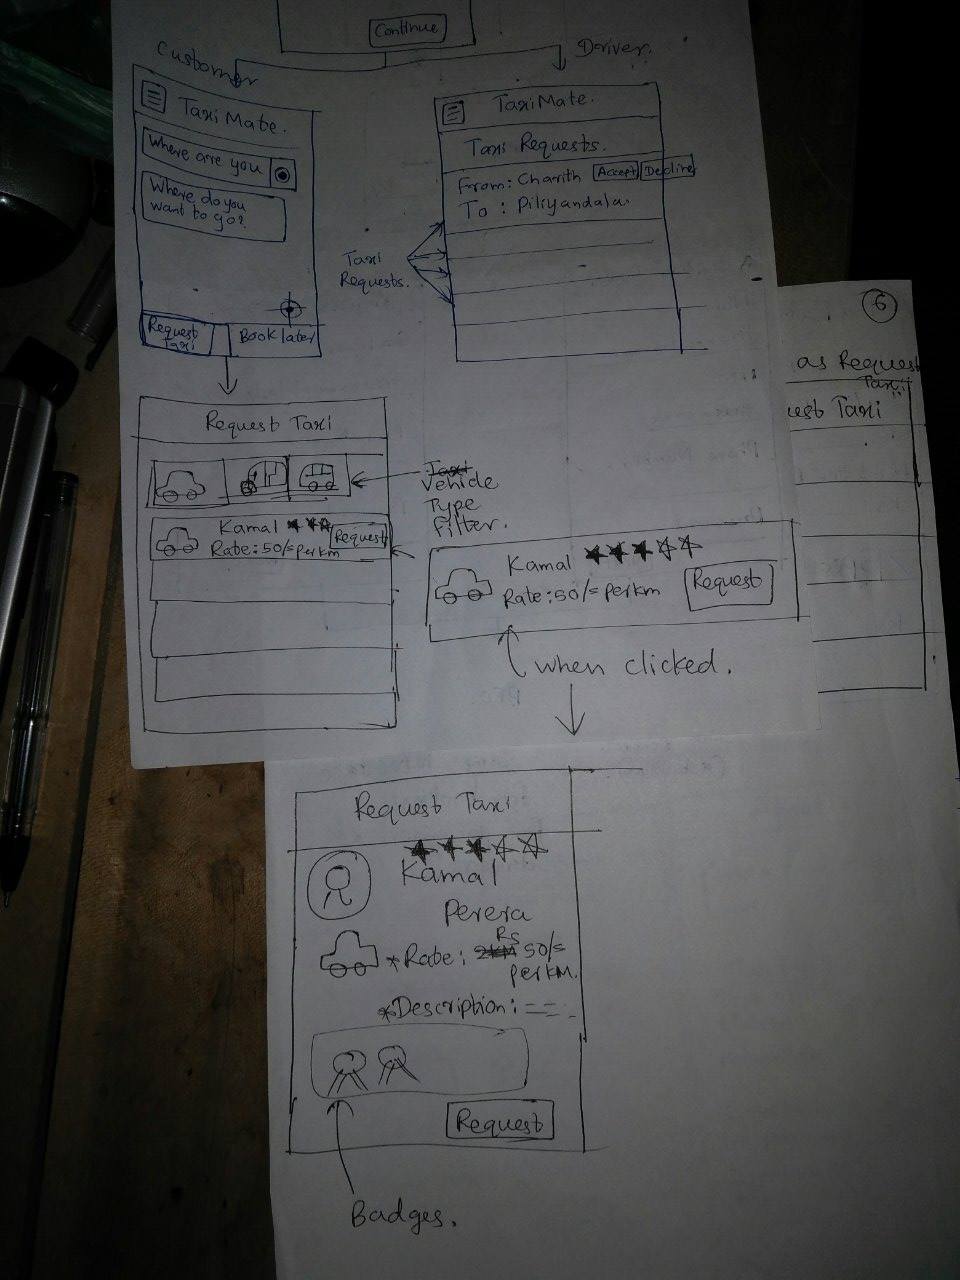 Continue
Customer
Driver.
TaxiMate.
Where are you
Where do you
want to go?
Request
Taxi
Book later
TaxiMate.
Taxi Requests.
From: Charith Accept Decline
To : Piliyandala.
Taxi
Requests.
Request Taxi
Vehicle
Type
Filter.
Kamal
Rate: 50/= per km
Request
Kamal
Rate: 50/= per km
Request
when clicked.
6
as Request
Taxi.
uest Taxi
Request Taxi
Kamal
Perera
*Rate: Rs 50/=
per km.
*Description:
Request
Badges.